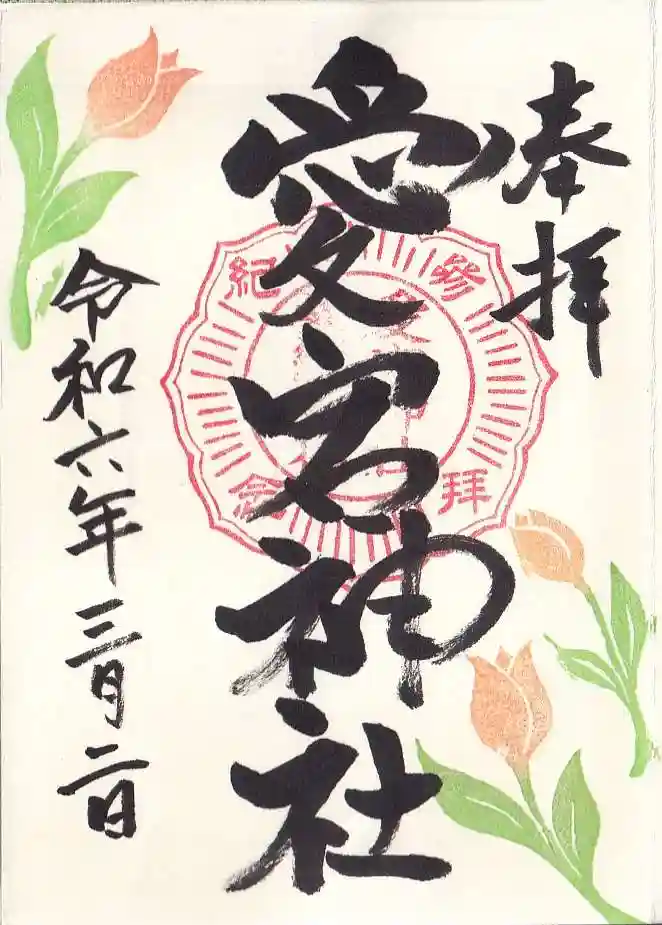 奉拝
愛宕神社
參拝
紀念
令和六年三月二日